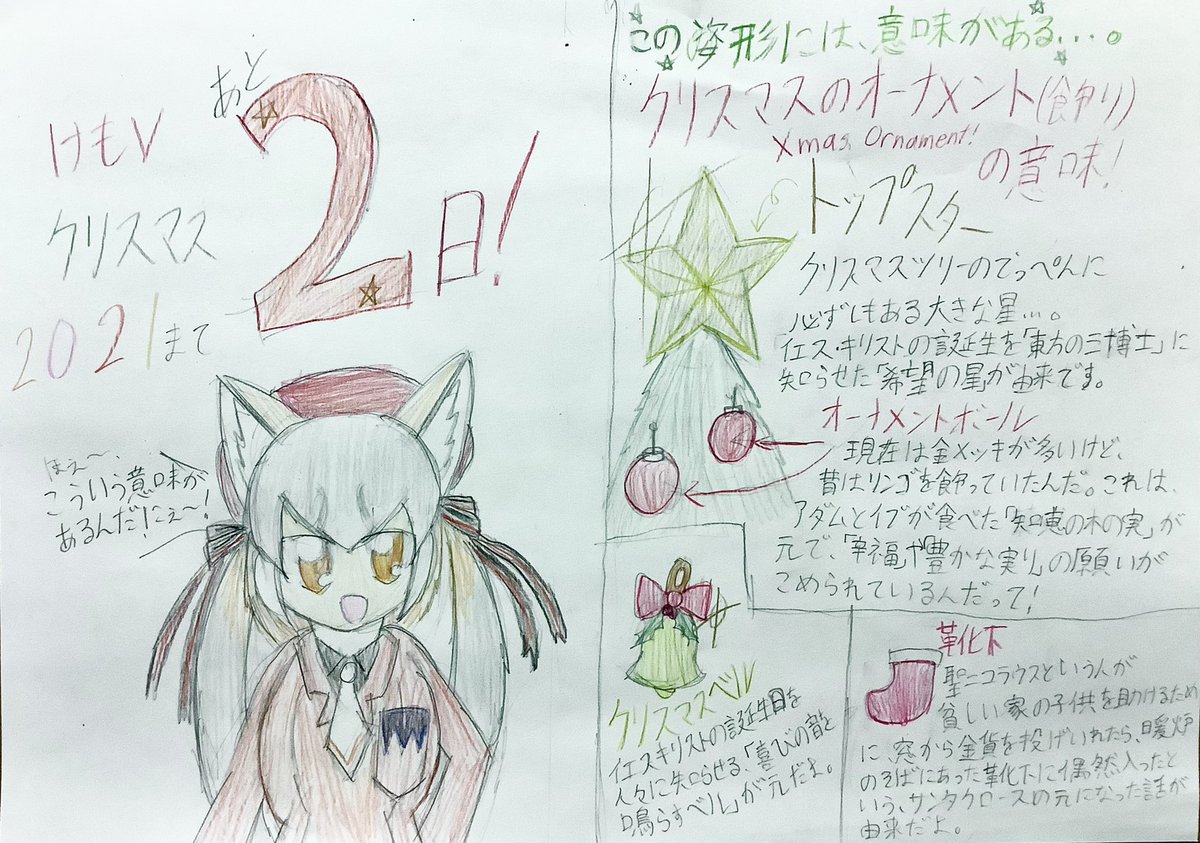 けもV
クリスマス
2021まで
あと
2日!
ほえ〜、
こういう意味が
あるんだにぇ〜!
この姿形には、意味がある...。
クリスマスのオーナメント(飾り)
Xmas Ornament!
の意味!
トップスター
クリスマスツリーのてっぺんに
必ずしもある大きな星...。
イエス・キリストの誕生を「東方の三博士」に
知らせた「希望の星」が由来です。
オーナメントボール
現在は金メッキが多いけど、
昔はリンゴを飾っていたんだ。これは、
アダムとイブが食べた「知恵の木の実」が
元で、「幸福」や「豊かな実り」の願いが
こめられているんだって!
クリスマスベル
イエスキリストの誕生日を
人々に知らせる、「喜びの音を
鳴らすベル」が元だよ。
靴下
聖ニコラウスという人が
貧しい家の子供を助けるため
に、窓から金貨を投げいれたら、暖炉
のそばにあった靴下に偶然入ったと
いう、サンタクロースの元になった話が
由来だよ。